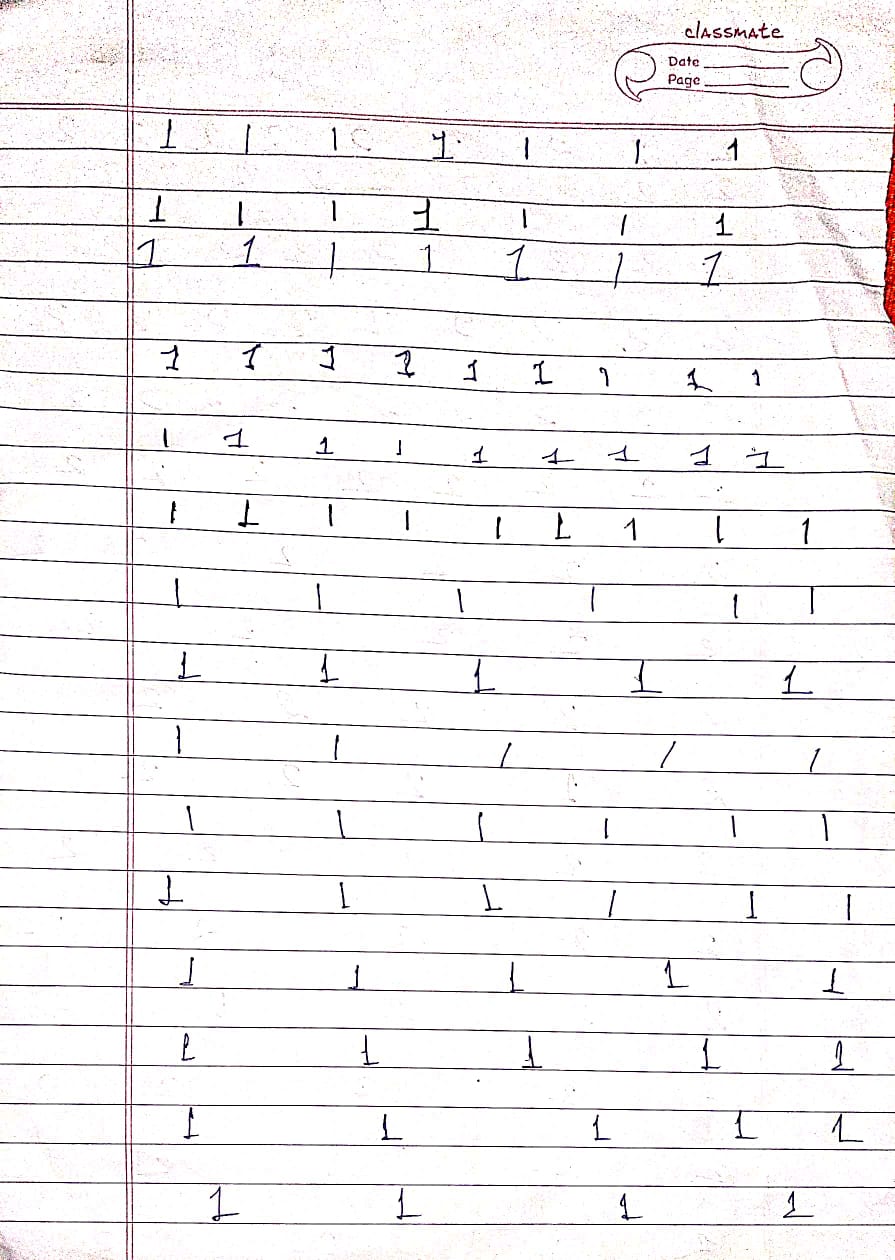 classmate
Date
Page
1 1 1 1 1 1 1
1 1 1 1 1 1 1
1 1 1 1 1 1 1
1 1 1 1 1 1 1 1 1
1 1 1 1 1 1 1 1 1
1 1 1 1 1 1 1 1 1
1 1 1 1 1 1
1 1 1 1 1
1 1 1 1 1
1 1 1 1 1 1
1 1 1 1 1 1
1 1 1 1 1
1 1 1 1 1
1 1 1 1 1
1 1 1 1